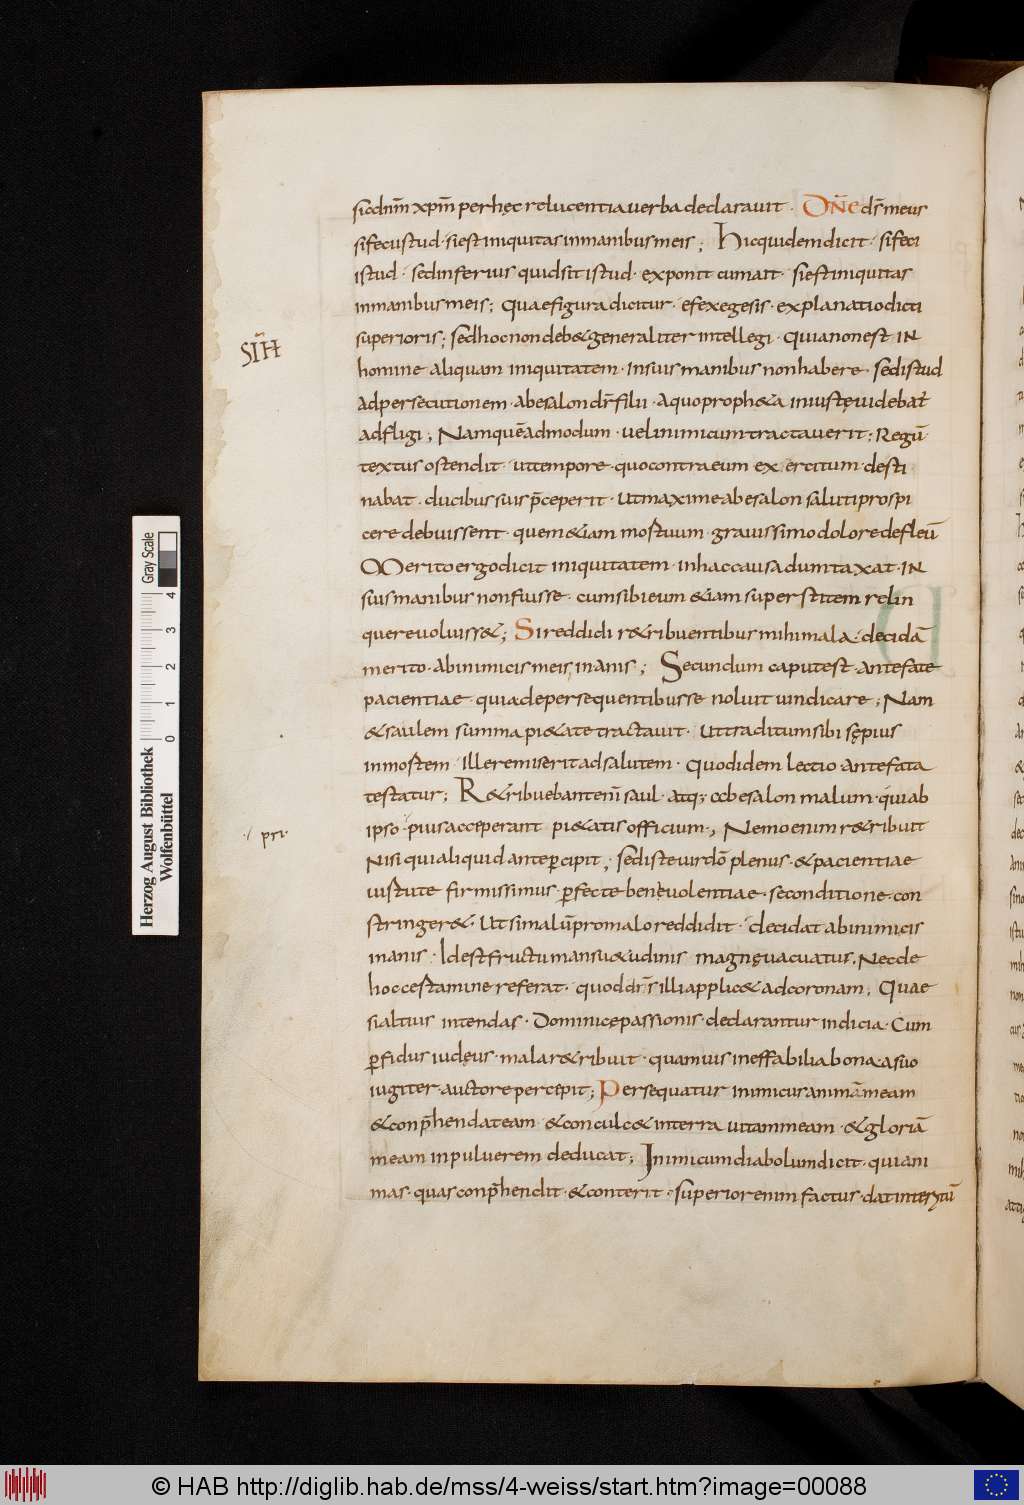 sicdnm̄ xpm̄ per hęc relucentia uerba declarauit · DN̄E ds̄ meus
si feci istud · si est iniquitas in manibus meis ; Hic quidem dicit · si feci
istud · sed inferius quid sit istud · exponit cum ait · si est iniquitas
in manibus meis ; Quae figura dicitur · efexegesis · explanatio dicti
superioris ; sed hoc non deb& generaliter intellegi · quia non est IN
homine aliquam iniquitatem · in suis manibus non habere · sed istud
ad persecutionem · abesalon dr̄ filii · a quo proph&a iniuste uidebat̄
adfligi ; Nam quēadmodum · uel inimicum tractauerit ; Regū
textus ostendit · ut tempore · quo contra eum exercitum desti
nabat · ducibus suis p̄ceperit · ut maxime abesalon saluti prospi
cere debuissent · quem &iam mortuum · grauissimo dolore defleū
Merito ergo dicit iniquitatem · in hac causa dumtaxat · IN
suis manibus non fuisse · cum sibi eum &iam superstitem relin
quere uoluiss& ; Si reddidi r&ribuentibus mihi mala · decidā
merito · ab inimicis meis inanis ; Secundum caput est · antefate
pacientiae · quia de persequentibus se noluit uindicare ; Nam
& saulem summa pi&ate tractauit · ut traditum sibi sępius
in mortem ille remiserit ad salutem · quod idem lectio antefata
testatur ; R&ribuebant enī saul · atq; abesalon malum · qui ab
ipso · prius acceperant pi&atis officium · , Nemo enim r&ribuit
Nisi qui aliquid ante p̱cipit ; sed iste uir dō plenus · & pacientiae
uirtute firmissimus · ꝑfecte beneuolentiae · se conditione con
stringer& · ut si malū pro malo reddidit · decidat ab inimicis
inanis · Id est fructu mansu&udinis magnę uacuatus . Nec de
hoc certamine referat · quod dn̄s illi applic& ad coronam ; Quae
si altius intendas · Dominicę passionis · declarantur indicia · Cum
ꝑfidus iudęus · mala r&ribuit · quamuis ineffabilia bona · a suo
iugiter auctore percepit ; Persequatur inimicus animā meam
& conp̄hendat eam · & conculc& in terra uitam meam · & gloriā
meam in puluerem deducat ; Inimicum diabolum dicit · qui ani
mas · quas conp̄hendit · & conterit · superior enim factus · dat interitū
SIH̄
· pri ·
Herzog August Bibliothek
Wolfenbüttel
0 1 2 3 4
Gray Scale
© HAB http://diglib.hab.de/mss/4-weiss/start.htm?image=00088